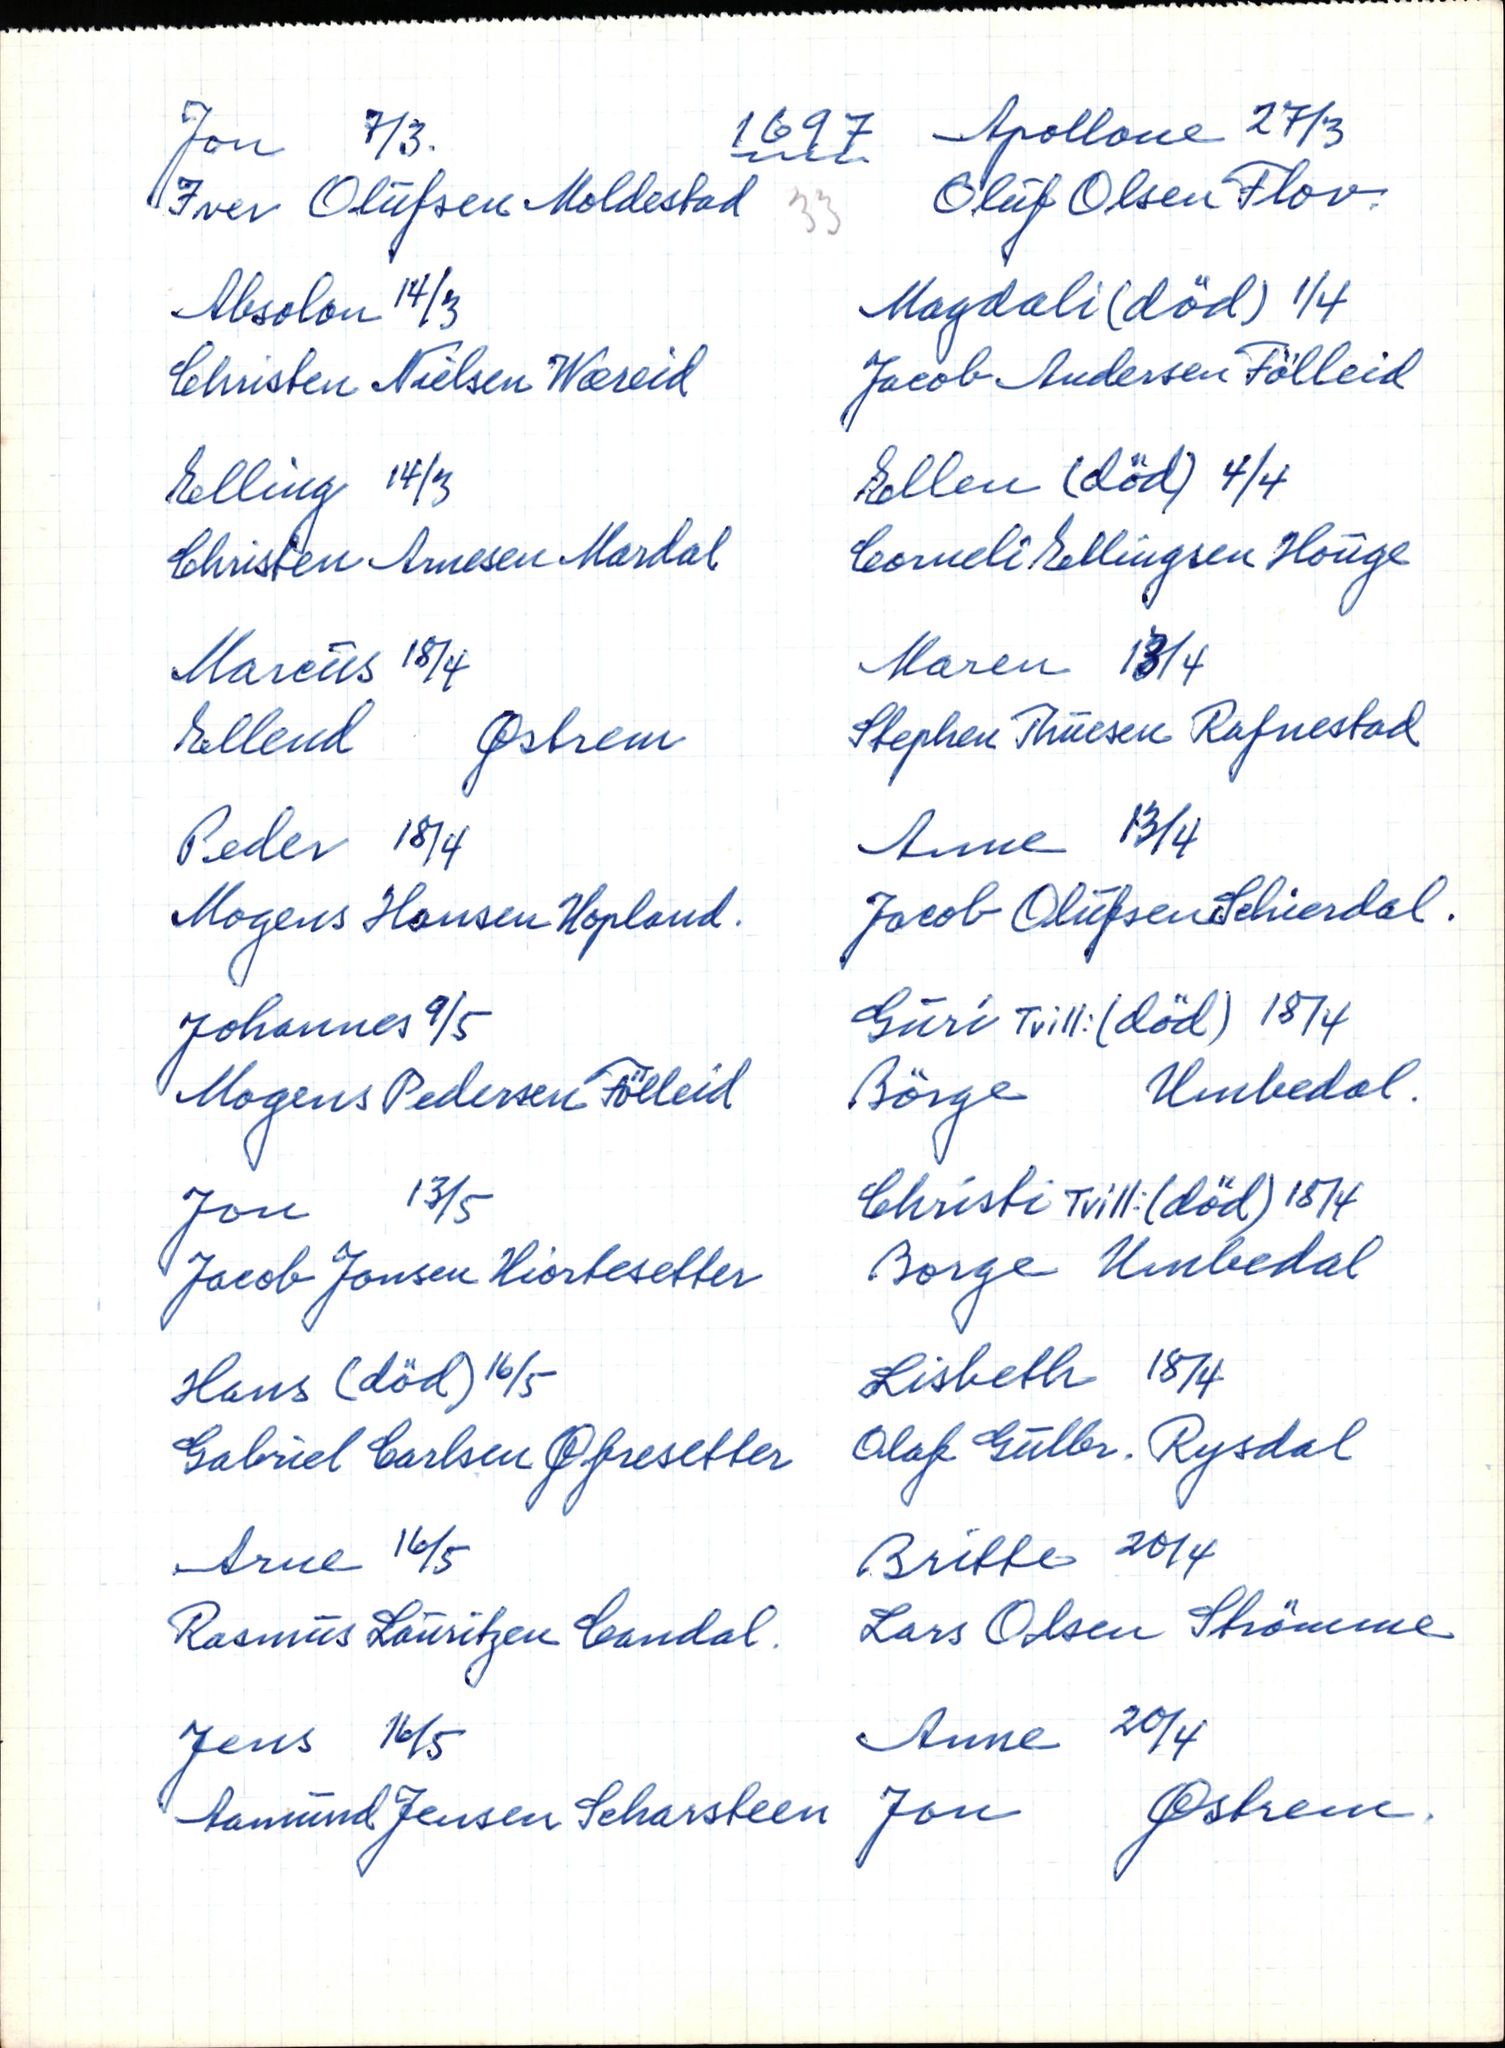 1697
33
Jon 7/3.
Iver Olüfsen Moldestad
Absolon 14/3
Christen Nielsen Wæreid
Elling 14/3
Christen Arnesen Mardal
Marcüs 18/4
Ellend Østrem
Peder 18/4
Mogens Hansen Hopland.
Johannes 9/5
Mogens Pedersen Fölleid
Jon 13/5
Jacob Jonsen Hiortesetter
Hans (död) 16/5
Gabriel Carlsen Øfresetter
Arne 16/5
Rasmüs Laüritzen Candal.
Jens 16/5
Aamünd Jensen Scharsteen
Apollone 27/3
Olüf Olsen Flov.
Magdali (död) 1/4
Jacob Andersen Fölleid
Ellen (död) 4/4
Corneli Ellingsen Hoüge
Maren 13/4
Stephen Thüesen Rafnestad
Anne 13/4
Jacob Olüfsen Schierdal.
Güri Tvill: (död) 18/4
Börge Umbedal.
Christi Tvill: (död) 18/4
Borge Umbedal
Lisbeth 18/4
Olaf Güllbr. Rysdal
Britte 20/4
Lars Olsen Strömme
Anne 20/4
Jon Østrem.